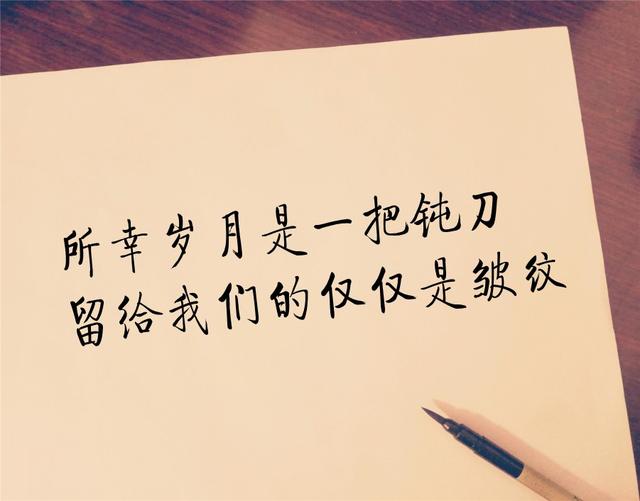 所幸岁月是一把钝刀
留给我们的仅仅是皱纹